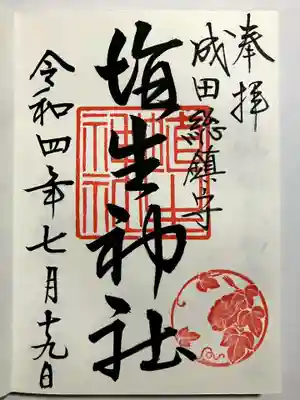 奉拝
成田総鎮守
埴生神社
令和四年七月十九日
埴生神社